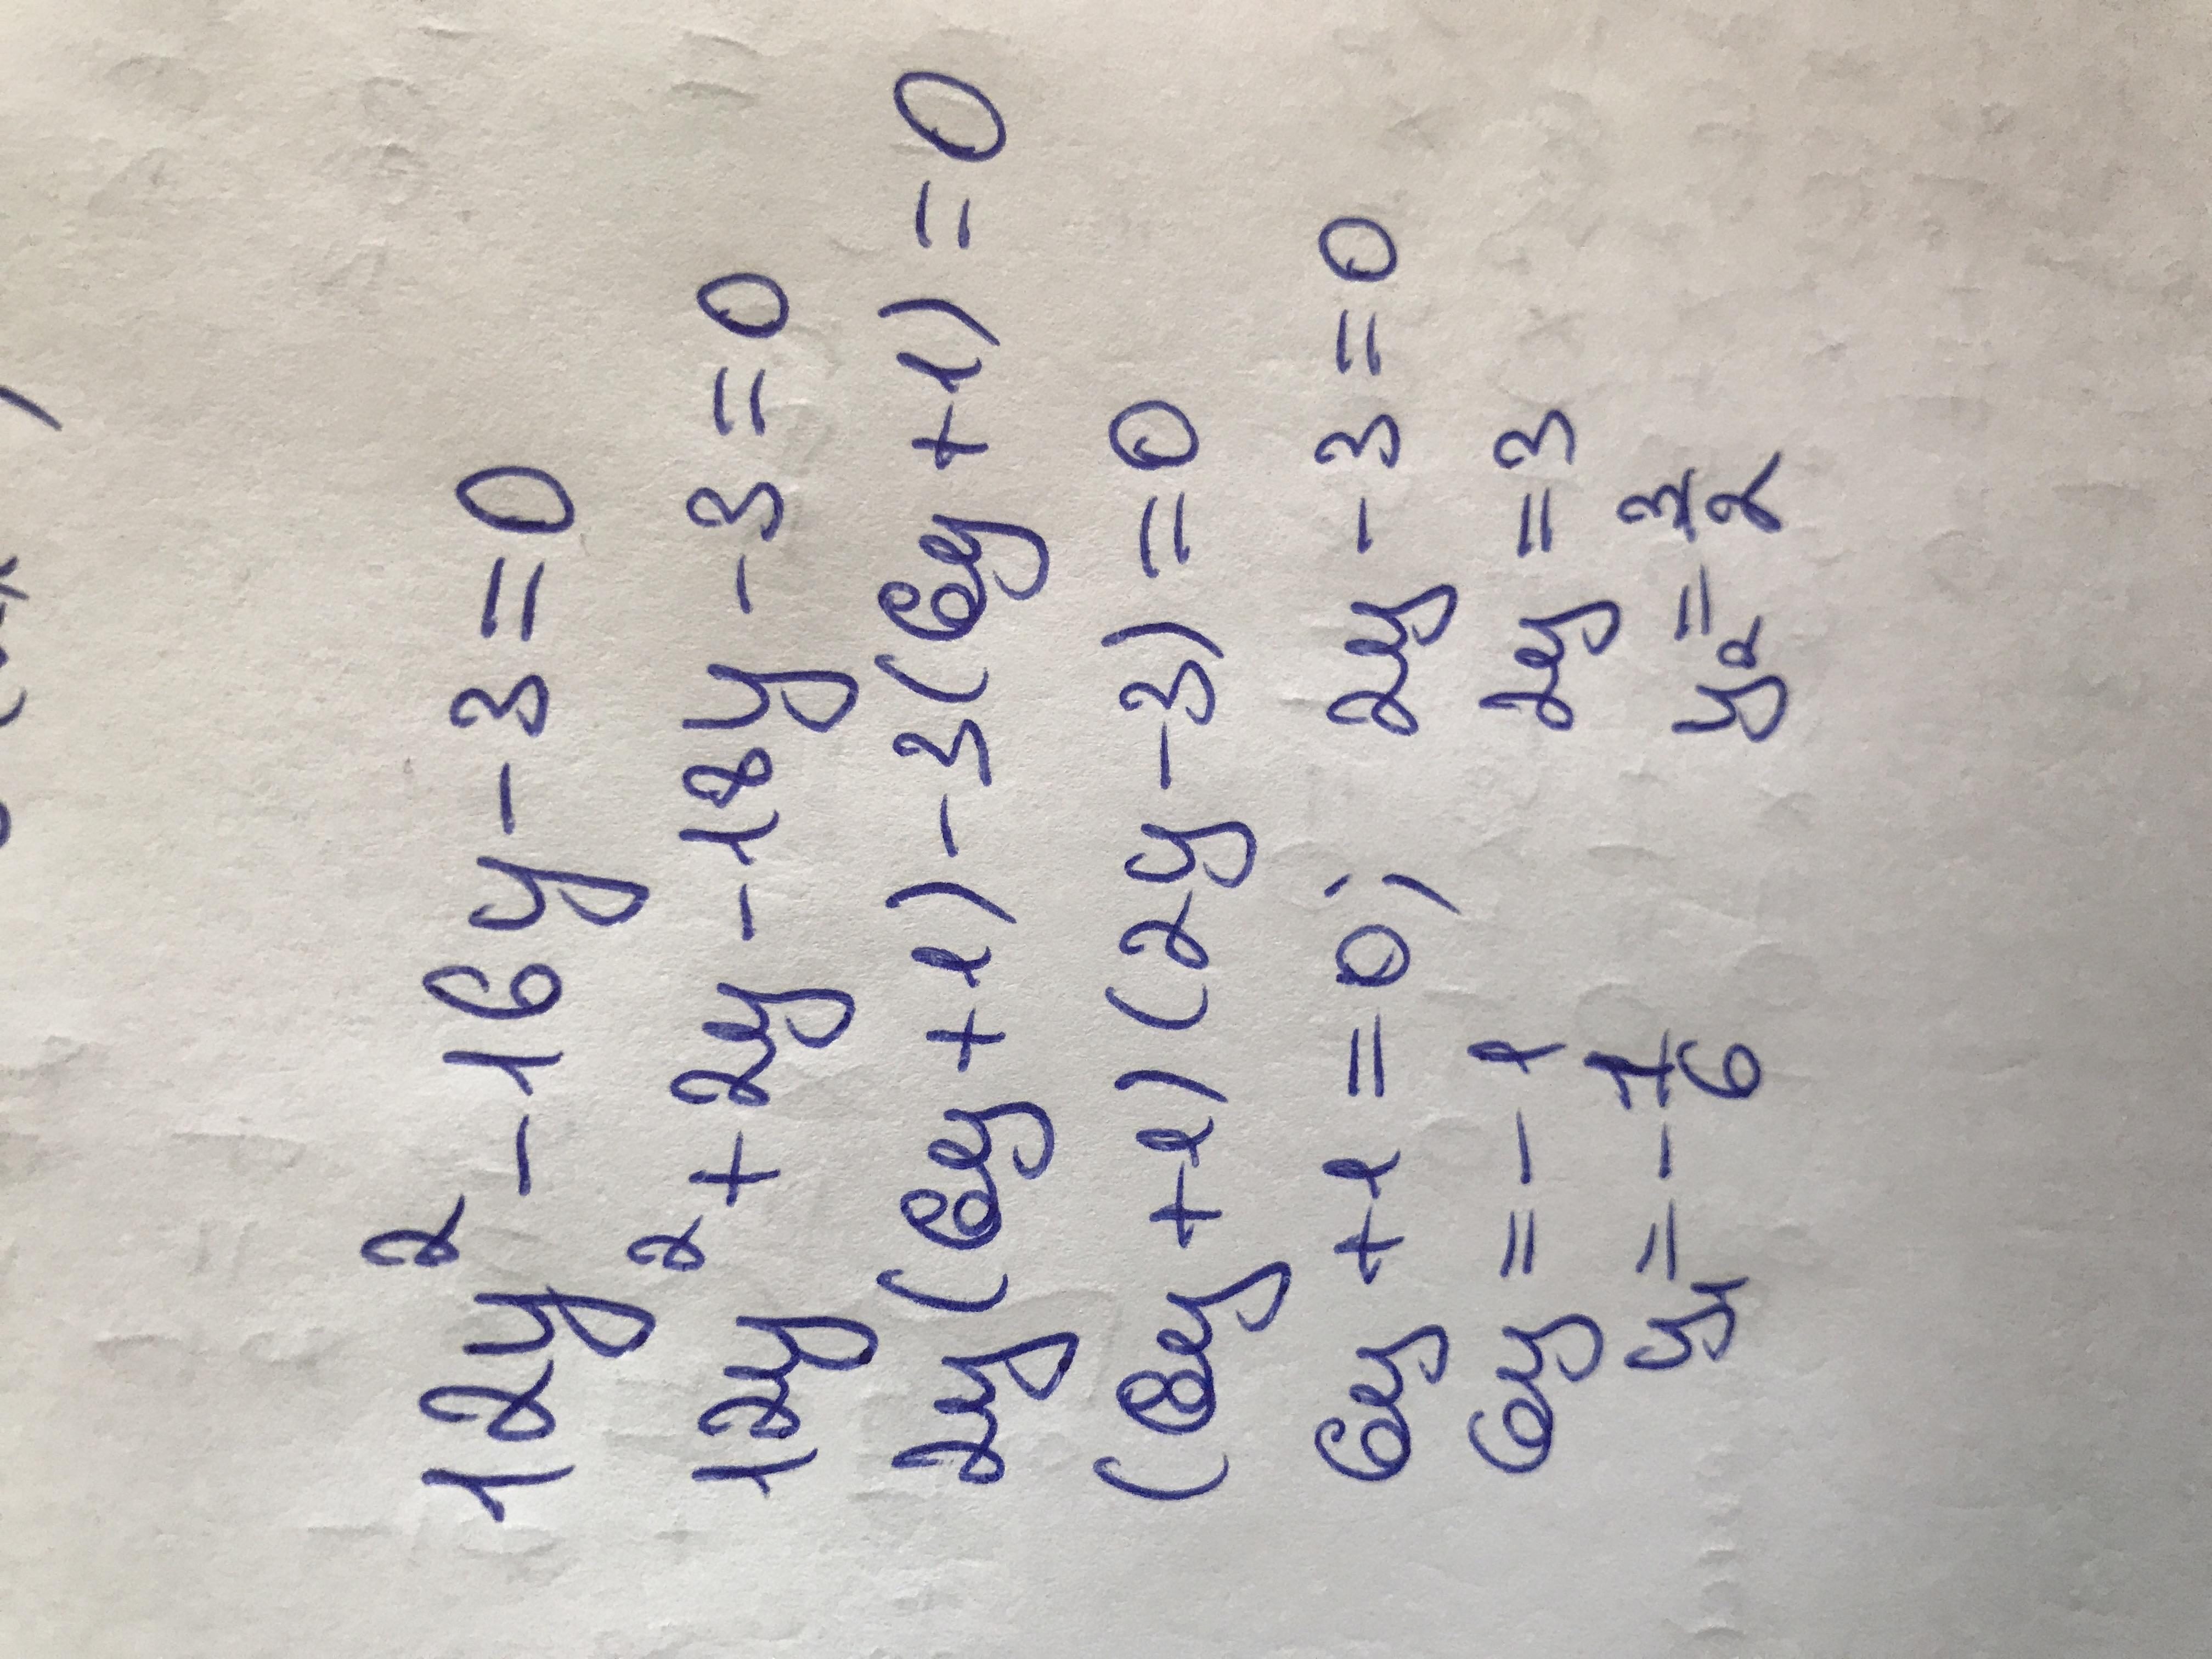 12y² - 16y - 3 = 0
12y² + 2y - 18y - 3 = 0
2y(6y + 1) - 3(6y + 1) = 0
(6y + 1)(2y - 3) = 0
6y + 1 = 0; 2y - 3 = 0
6y = - 1 2y = 3
y₁ = - 1/6 y₂ = 3/2